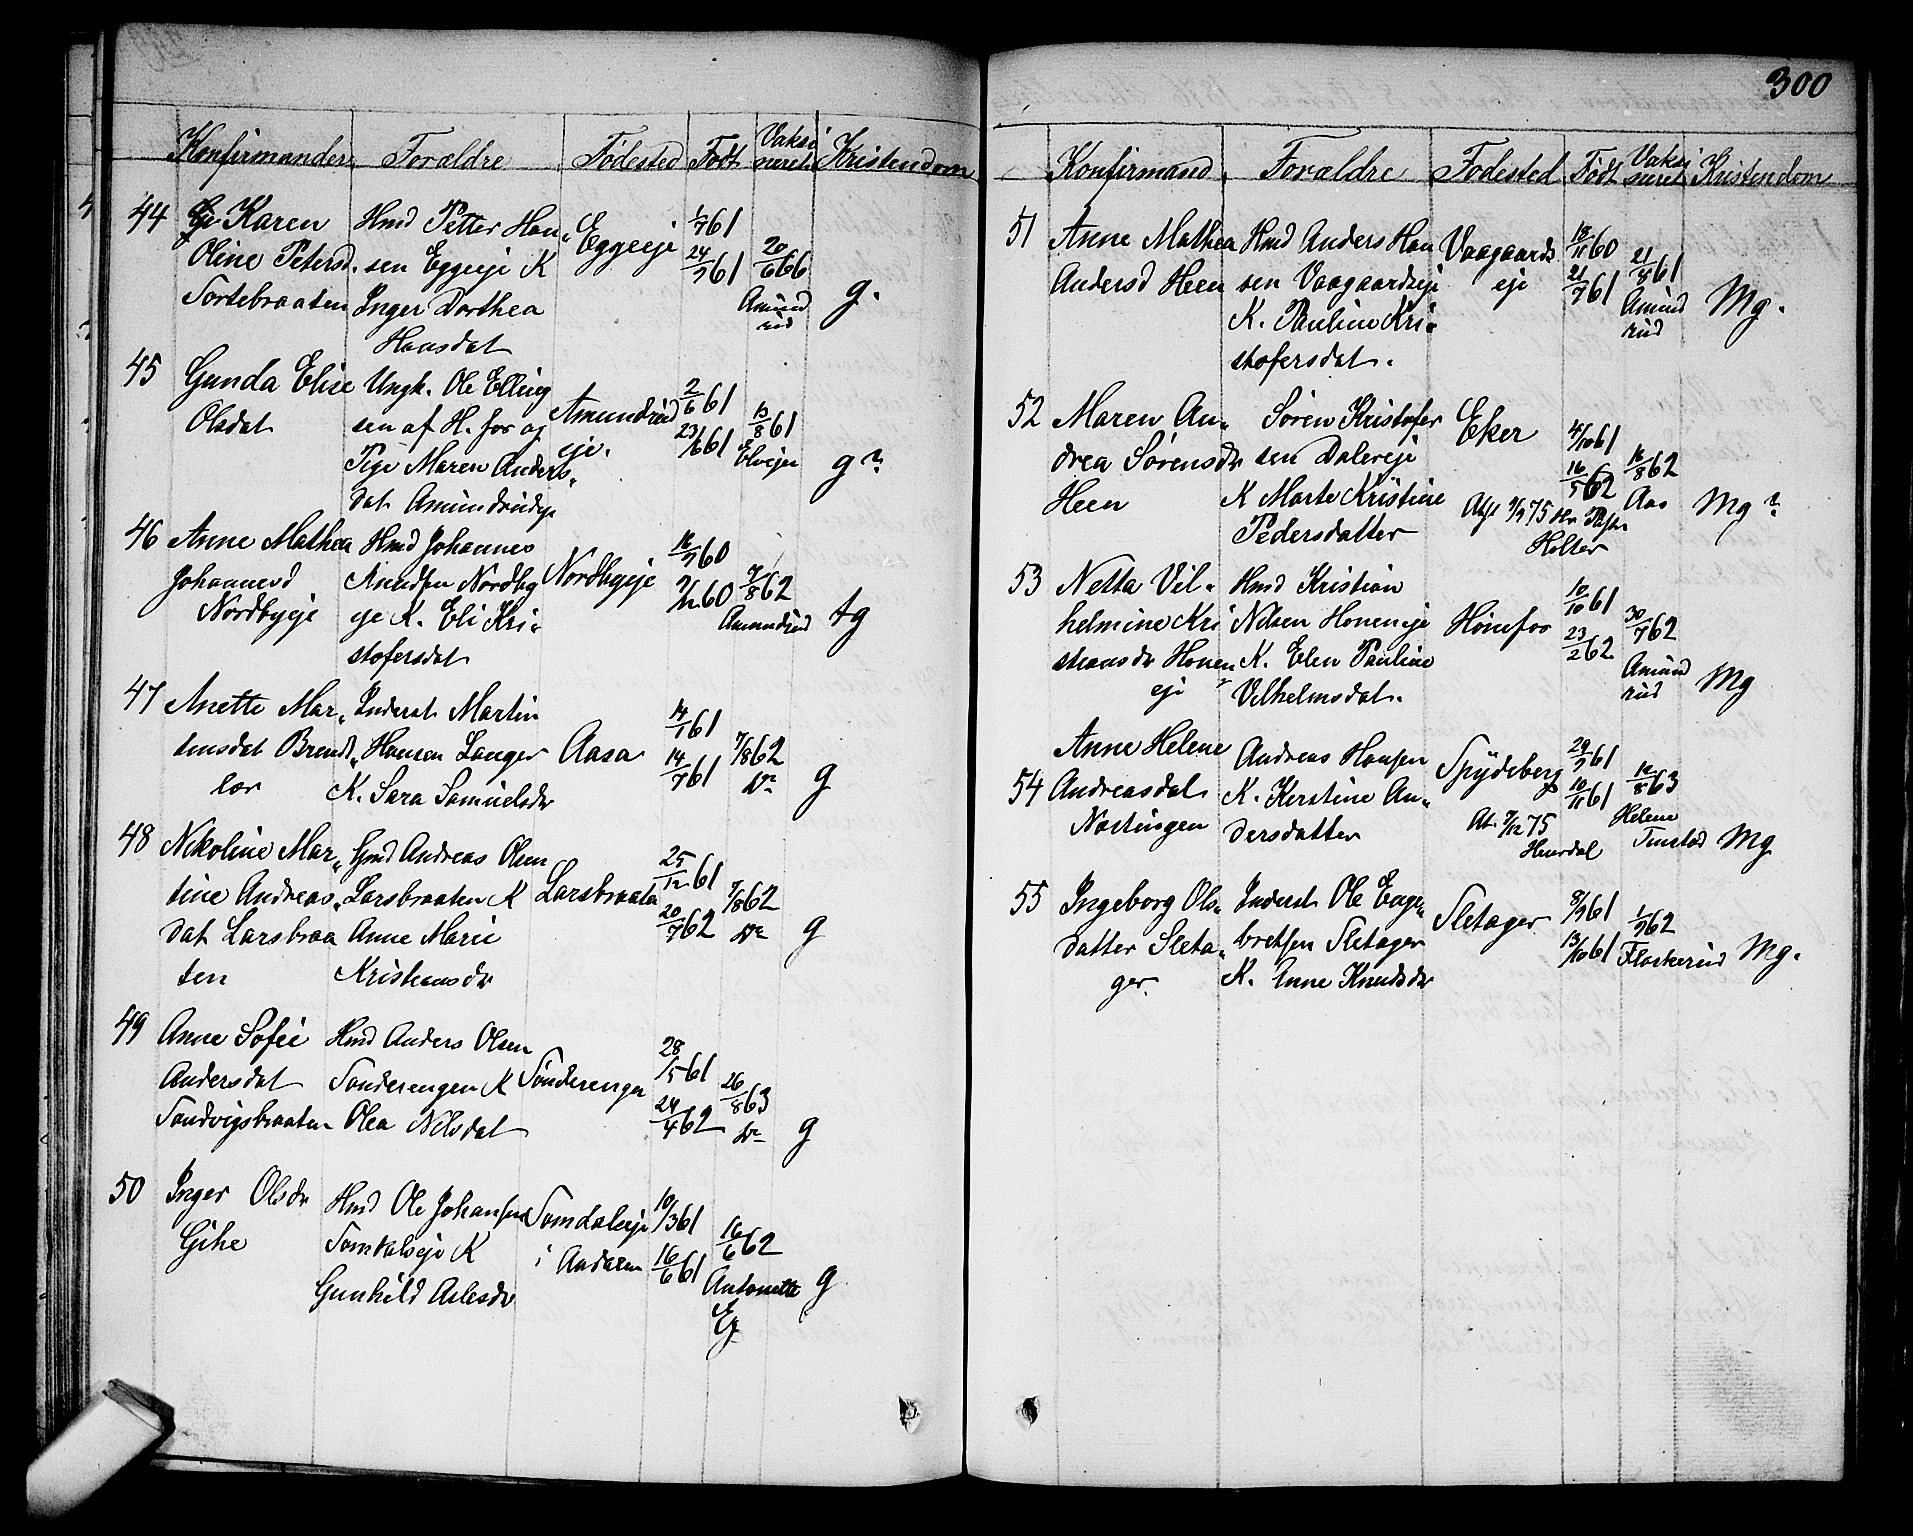 300
Konfirmander Forældre Fødested Født Vaksi neret Kristendom
44 Karen Oline Petersd. Tortebraaten
Hmd Petter Han„
sen Eggeeje K
Inger Dorthea
Hansdat
Eggeeje
1/7 61
24/9 61
20/6 66
Amund
rud
g.
45 Gunda Elise
Olsdat
Ungk. Ole Elling
sen af H. for og
Pige Maren Anders„
dat Amundrudeje
Amundrud
eje.
2/6 61
23/6 61
13/8 61
g
46 Anne Mathea
Johannesd
Nordbyeje
Hmd Johannes
Knudsen Nordby
eje K. Eli Kri„
stofersdat
Nordbyeje
16/9 60
7/8 62
Amundrud
tg
47 Anette Mar„
tinsdat
Inderst Martin
Hansen Langer
K. Sara Samuelsdr
Aasa
14/1 61
14/7 61
7/8 62
g
48 Nikoline Mar„
tine Andreas„
dat Larsbraa
ten
Hmd Andreas Olsen
Larsbraaten K
Anne Marie
Kristiansdr
Larsbraaten
25/12 61
20/7 62
7/8 62
g
49 Anne Sofie
Andersdat
Sandvigsbraaten
Hmd Anders Olsen
Sønderengen K
Olea Nilsdat
Sønderengen
28/5 61
24/4 62
26/8 63
g
50 Inger Olsdr
Gihe
Hmd Ole Johansen
Somdalseje K
Gunhild Aslesdr
Somdaleeje
i Aadalen
10/3 61
16/6 61
16/6 62
Antonette
g
Konfirmand Forældre Fødested Født Vaksi neret Kristendom
51 Anne Mathea
Andersd Heen
Hmd Anders Han
sen Vaagaardseje
K. Pauline Kri„
stofersdat.
Vaagaards
eje
18/11 60
21/7 61
21/4 61
Amund
rud
Mg.
52 Maren An„
drea Sørensdr
Heen
Søren Kristofer
sen Dalereje
K Marte Kristine
Pedersdatter
Eker
4/10 61
16/5 62
16/8 62
Aas
Mg
Holter
53 Netta Vil„
helmine Kri
stiansdr Honen
eje
Hmd Kristian
Nilsen Honeneje
K. Elen Pauline
Vilhelmsdat.
Hønefos
10/10 61
23/2 62
30/7 62
Amund
rud
Mg
54 Anne Helene
Andreasdat
Nostingen
Andreas Hansen
K. Kerstine An„
dersdatter
Spydeberg
29/9 61
10/11 61
At. 7/12 75
Hurdal
Helene
Mg
55 Ingeborg Ols„
datter Sleta„
ger
Inderst Ole Enge„
bretsen Sletager
K. Anne Knudsdr
Sletager
8/9 61
13/10 61
1/9 62
Flaskerud
Mg.